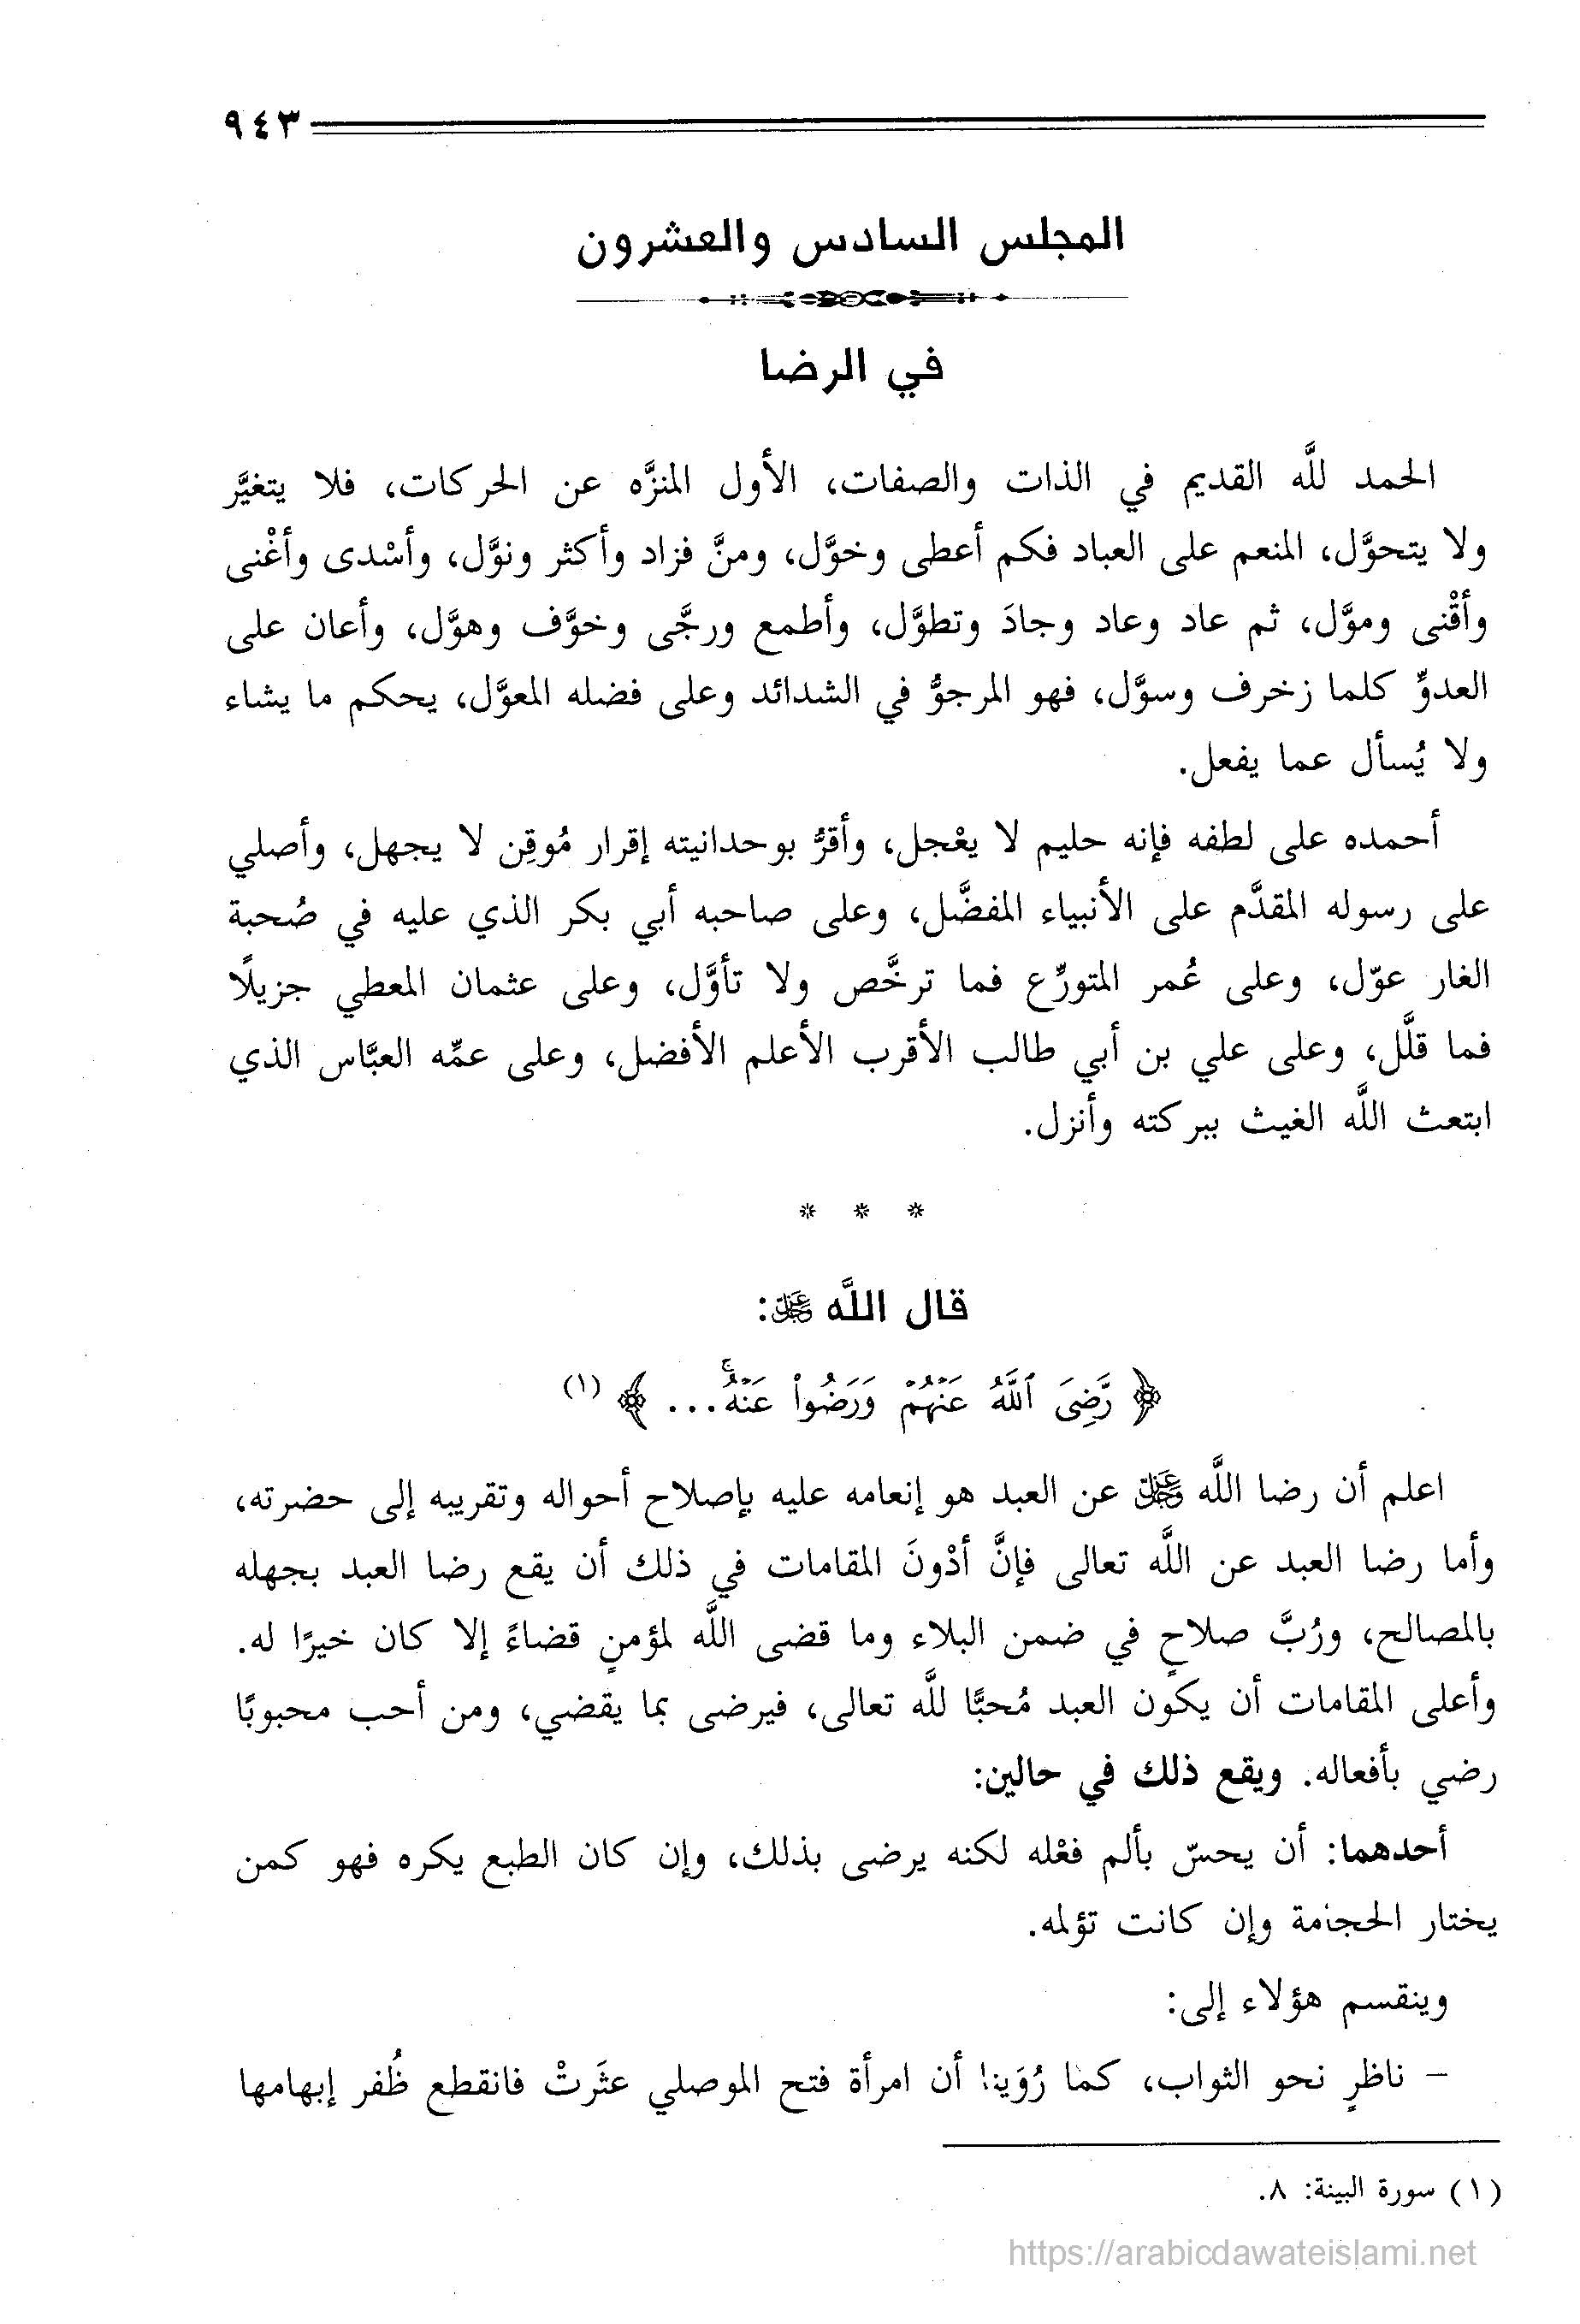 ٩٤٣
المجلس السادس والعشرون
في الرضا
الحمد للَّه القديم في الذات والصفات، الأول المنزَّه عن الحركات، فلا يتغيَّر
ولا يتحوَّل، المنعم على العباد فكم أعطى وخوَّل، ومنَّ فزاد وأكثر ونوَّل، وأسْدى وأغْنى
وأقْنى وموَّل، ثم عاد وعاد وجادَ وتطوَّل، وأطمع ورجَّى وخوَّف وهوَّل، وأعان على
العدوِّ كلما زخرف وسوَّل، فهو المرجوُّ في الشدائد وعلى فضله المعوَّل، يحكم ما يشاء
ولا يُسأل عما يفعل.
أحمده على لطفه فإنه حليم لا يعْجل، وأقرُّ بوحدانيته إقرار مُوقِن لا يجهل، وأصلي
على رسوله المقدَّم على الأنبياء المفضَّل، وعلى صاحبه أبي بكر الذي عليه في صُحبة
الغار عوّل، وعلى عُمر المتورِّع فما ترخَّص ولا تأوَّل، وعلى عثمان المعطي جزيلًا
فما قلَّل، وعلى علي بن أبي طالب الأقرب الأعلم الأفضل، وعلى عمِّه العبَّاس الذي
ابتعث اللَّه الغيث ببركته وأنزل.
* * *
قال اللَّه عز وجل:
﴿ رَّضِىَ ٱللَّهُ عَنْهُمْ وَرَضُوا۟ عَنْهُ ۚ... ﴾ (١)
اعلم أن رضا اللَّه عز وجل عن العبد هو إنعامه عليه بإصلاح أحواله وتقريبه إلى حضرته،
وأما رضا العبد عن اللَّه تعالى فإنَّ أدْونَ المقامات في ذلك أن يقع رضا العبد بجهله
بالمصالح، ورُبَّ صلاحٍ في ضمن البلاء وما قضى اللَّه لمؤمنٍ قضاءً إلا كان خيرًا له.
وأعلى المقامات أن يكون العبد مُحبًّا للَّه تعالى، فيرضى بما يقضي، ومن أحب محبوبًا
رضي بأفعاله. ويقع ذلك في حالين:
أحدهما: أن يحسّ بألم فعْله لكنه يرضى بذلك، وإن كان الطبع يكره فهو كمن
يختار الحجامة وإن كانت تؤلمه.
وينقسم هؤلاء إلى:
- ناظرٍ نحو الثواب، كما رُوَينا أن امرأة فتح الموصلي عثَرتْ فانقطع ظُفر إبهامها
(١) سورة البينة: ٨.
https://arabicdawateislami.net